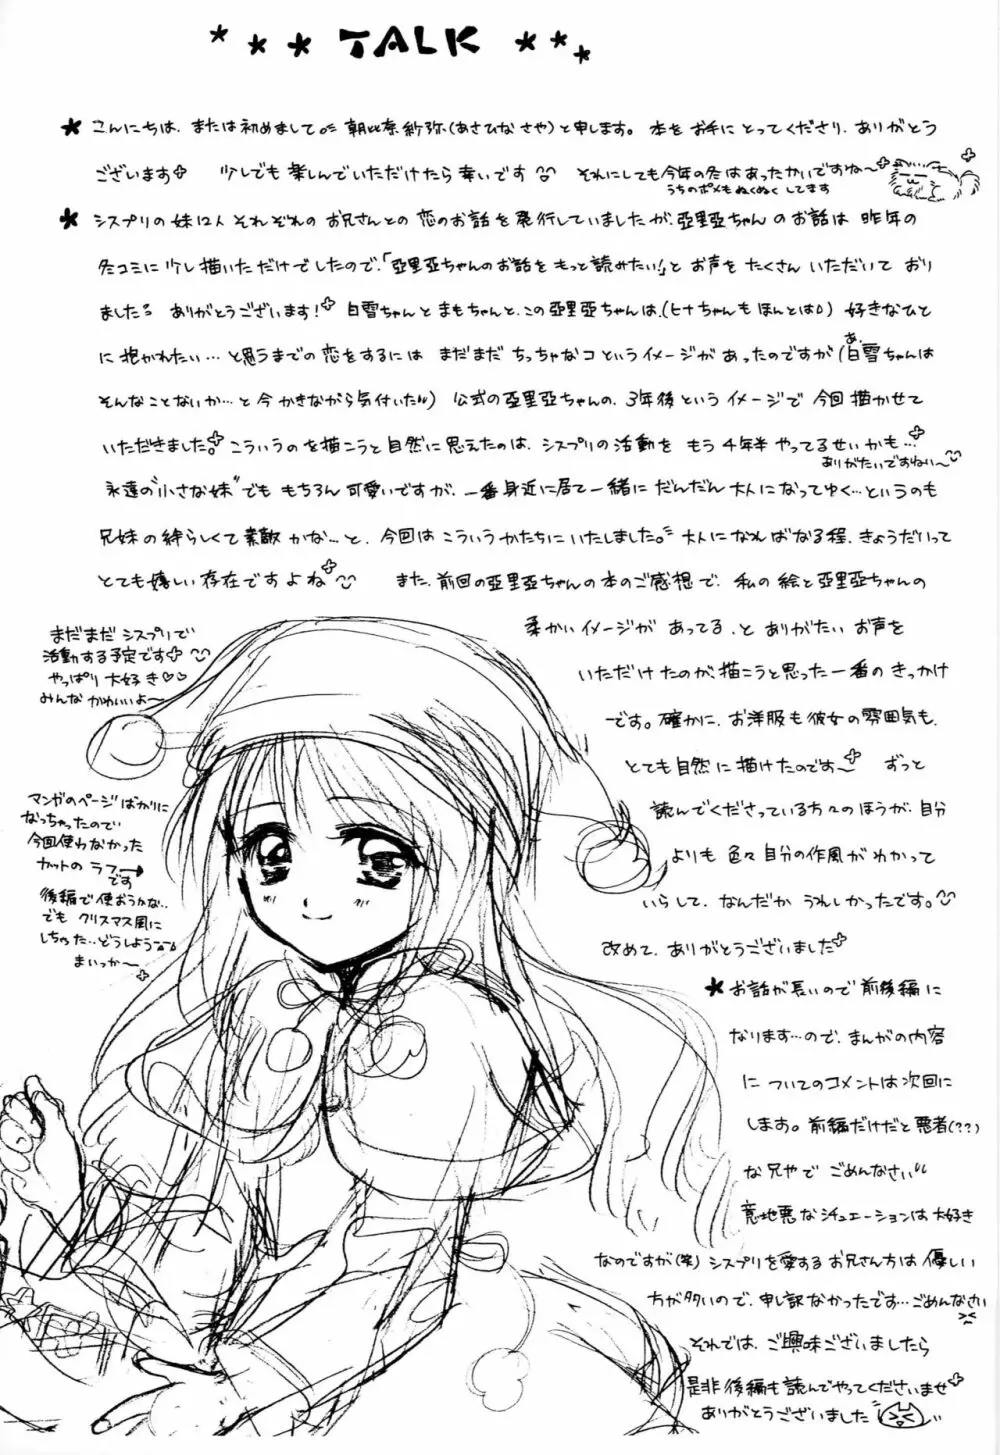 TALK
こんにちは、または初めまして 朝比奈紗弥(あさひなさや)と申します。本をお手にとってくださり、ありがとう
ございます 少しでも楽しんでいただけたら幸いです それにしても今年の冬はあったかいですね〜
うちのポメもぬくぬくしてます
シスプリの妹12人それぞれのお兄さんとの恋のお話を発行していましたが、亞里亞ちゃんのお話は昨年の
冬コミに少し描いただけでしたので、「亞里亞ちゃんのお話をもっと読みたい!」とお声をたくさんいただいており
ました ありがとうございます! 白雪ちゃんとまもちゃんと、この亞里亞ちゃんは、(ヒナちゃんもほんとは) 好きなひと
に抱かれたい…と思うまでの恋をするにはまだまだちっちゃなコというイメージがあったのですが(あ、白雪ちゃんは
そんなことないか…と今かきながら気付いた) 公式の亞里亞ちゃんの、3年後というイメージで今回描かせて
いただきました。こういうのを描こうと自然に思えたのは、シスプリの活動をもう4年半やってるせいかも…
ありがたいですねぃ〜
永遠の"小さな妹"でももちろん可愛いですが、一番身近に居て一緒にだんだん大人になってゆく…というのも
兄妹の絆らしくて素敵かな…と、今回はこういうかたちにいたしました。大人になればなる程、きょうだいって
とても嬉しい存在ですよね また、前回の亞里亞ちゃんの本のご感想で、私の絵と亞里亞ちゃんの
柔かいイメージがあってる、とありがたいお声を
いただけたのが、描こうと思った一番のきっかけ
です。確かに、お洋服も彼女の雰囲気も、
とても自然に描けたのです〜 ずっと
読んでくださっている方々のほうが、自分
よりも色々自分の作風がわかって
いらして、なんだかうれしかったです。
改めて、ありがとうございました
まだまだシスプリで
活動する予定です
やっぱり大好き♡♡
みんなかわいいよ〜
マンガのページばかりに
なっちゃったので
今回使わなかった
カットのラフ→
です
後編で使おうかな..
でもクリスマス風に
しちゃった…どうしよう
まいっか〜
お話が長いので前後編に
なります…ので、まんがの内容
についてのコメントは次回に
します。前編だけだと悪者(??)
な兄やでごめんなさい
意地悪なシチュエーションは大好き
なのですが(笑)シスプリを愛するお兄さん方は優しい
方が多いので、申し訳なかったです…ごめんなさい
それでは、ご興味ございましたら
是非後編も読んでやってくださいませ
ありがとうございました